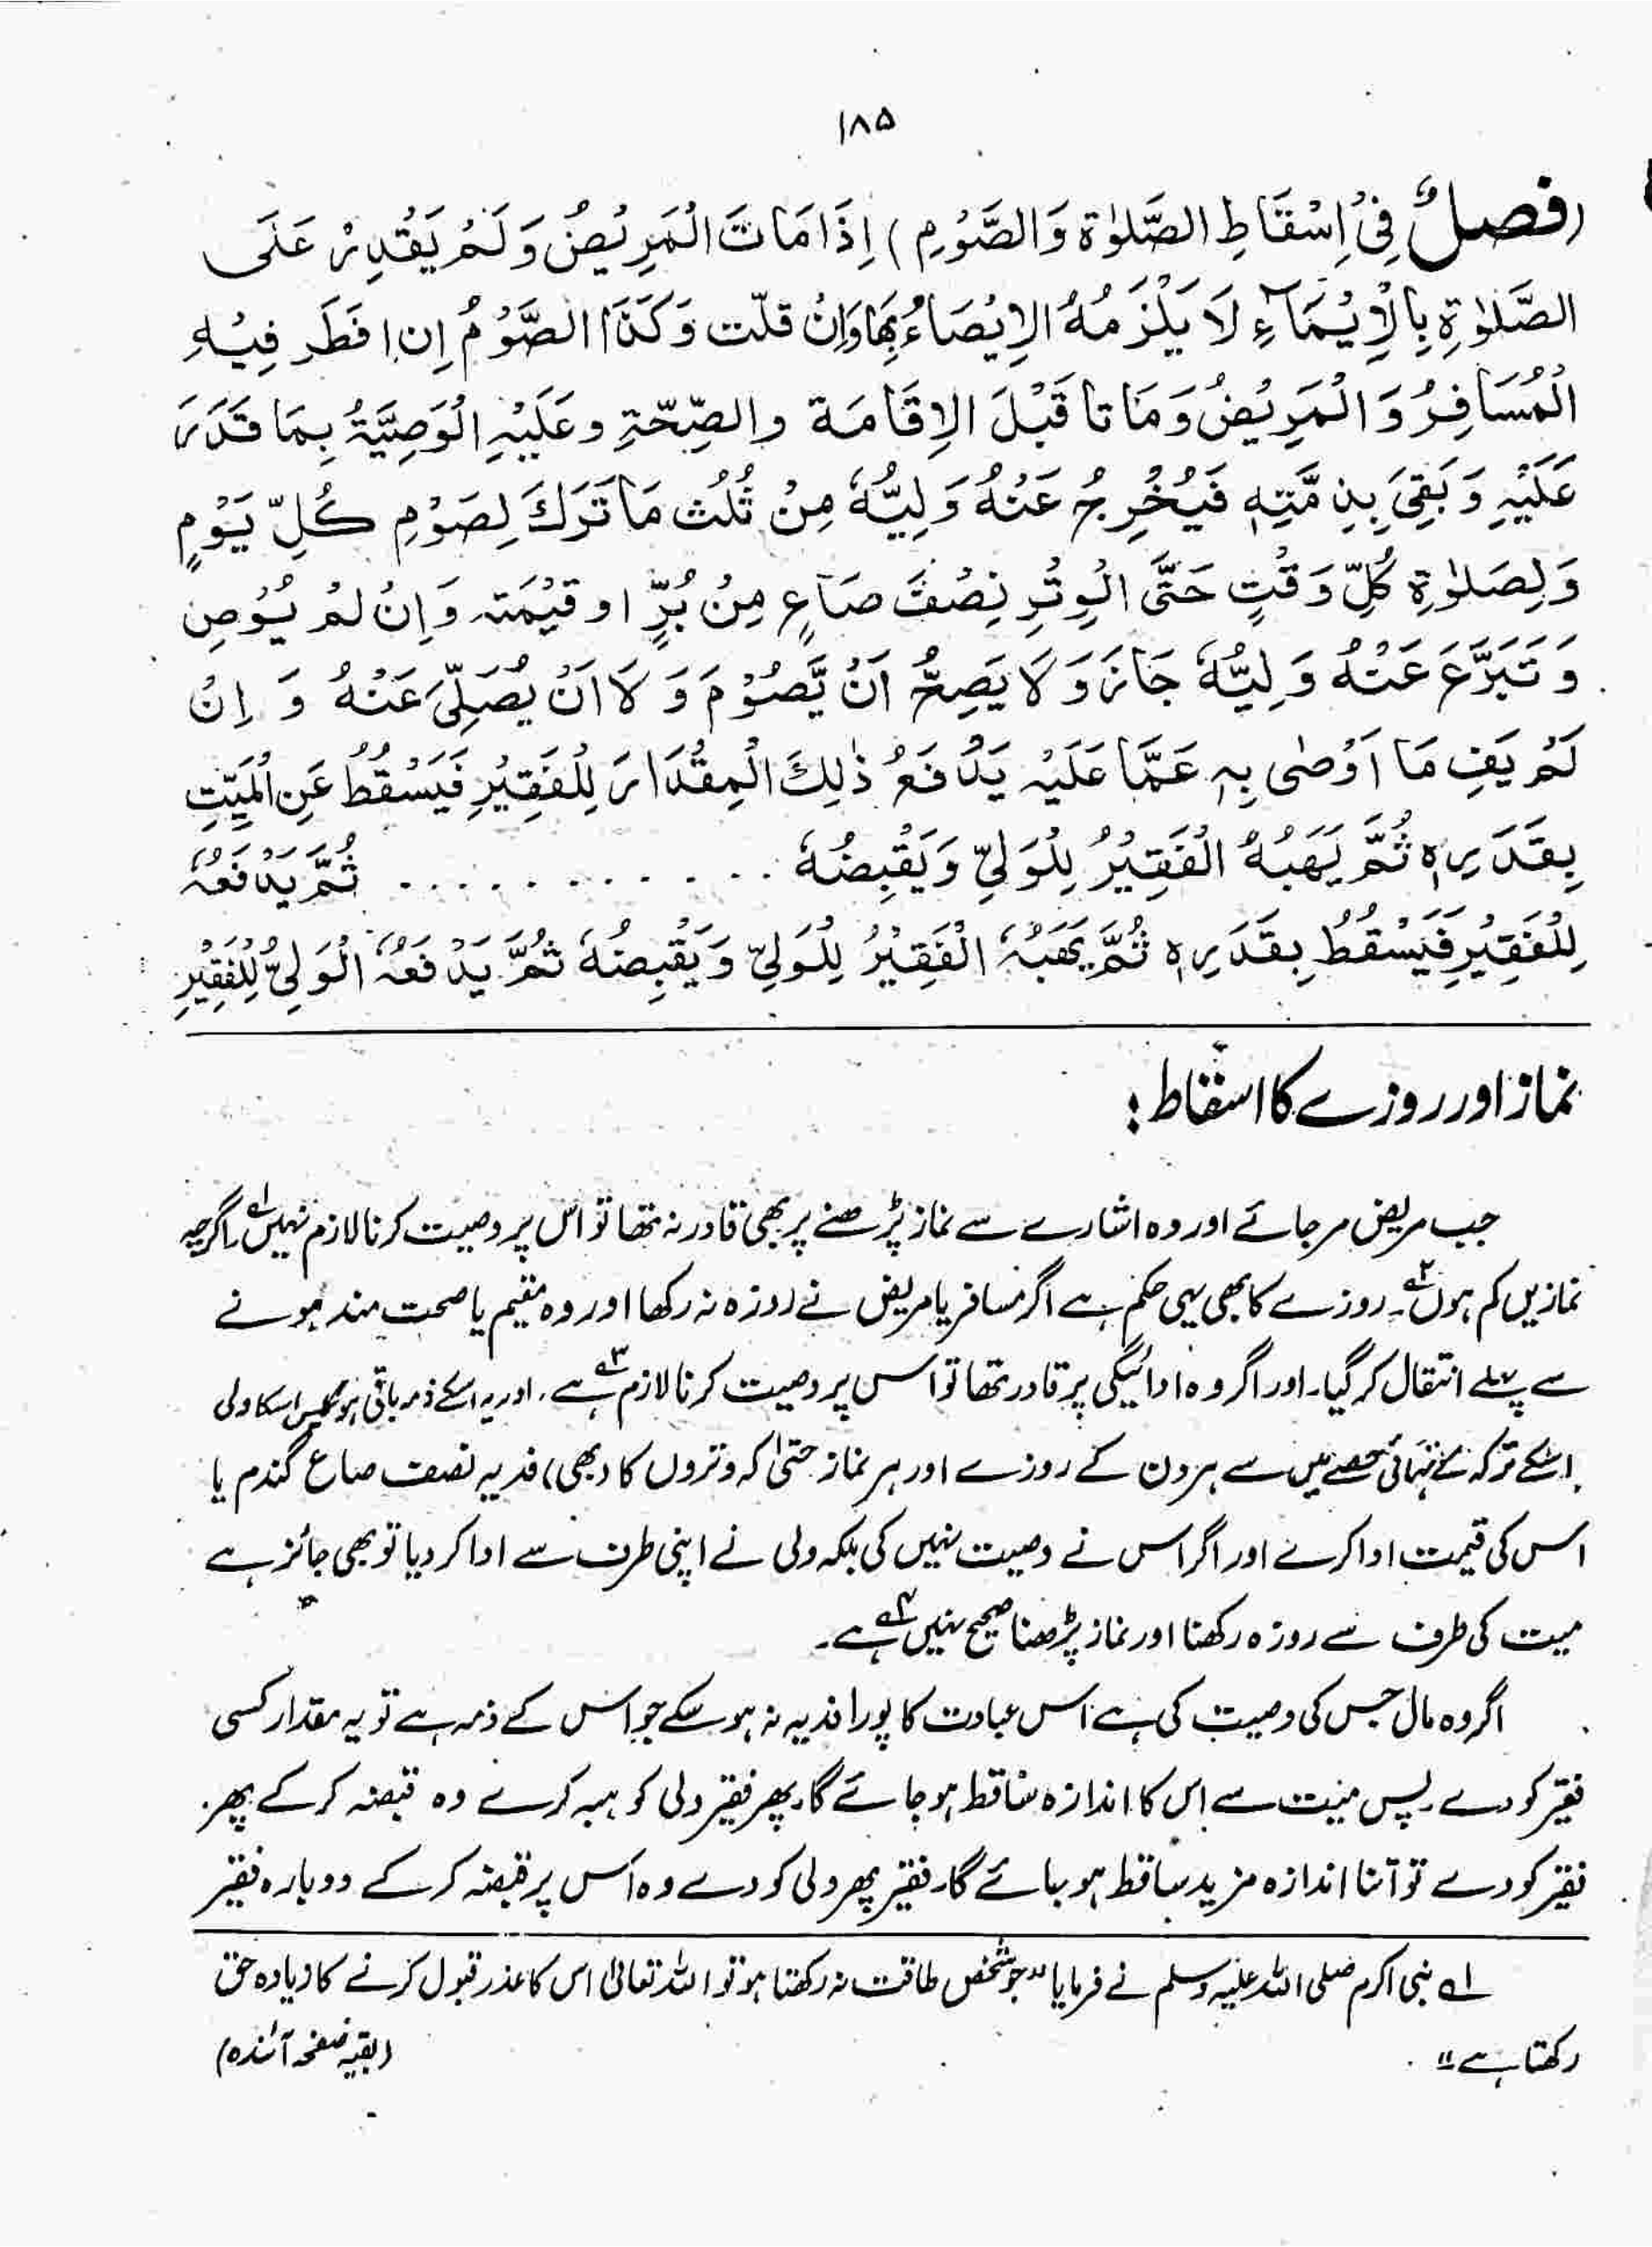 ۱۸۵
(فصلٌ فِیْ اِسْقَاطِ الصَّلٰوۃ وَالصَّوْمِ) اِذَا مَاتَ الْمَرِیْضُ وَ لَمْ یَقْدِرْ عَلَی
الصَّلٰوۃِ بِالْاِیْمَآءِ لَا یَلْزَمُہُ الاِیْصَاءُ بِھَا وَاِنْ قلّت وَ کَذَا الصَّوْمُ اِن افطَرَ فِیْہِ
الْمُسَافِرُ وَ الْمَرِیْضُ وَ مَاتا قَبْلَ الاِقَامَۃ والصِّحّۃِ وعَلَیْہِ الْوَصِیَّۃُ بِمَا قَدَرَ
عَلَیْہِ وَ بَقِیَ بِذِمَّتِہٖ فَیُخْرِجُ عَنْہُ وَلِیُّہٗ مِنْ ثُلُث مَا تَرَكَ لِصَوْمِ کُلِّ یَوْمٍ
وَ لِصَلٰوۃِ کُلِّ وَقْتٍ حَتَّی الْوِتْرِ نِصْفَ صَاعٍ مِنْ بُرٍّ او قیْمَتہ وَ اِنْ لمْ یُوْصِ
وَ تَبَرَّعَ عَنْہُ وَلِیُّہٗ جَازَ وَ لَا یَصِحُّ اَنْ یَّصُوْمَ وَ لَا اَنْ یُصَلِّیَ عَنْہُ وَ اِنْ
لَمْ یَفِ مَا اَوْصٰی بِہٖ عَمَّا عَلَیْہ یَدْفَعُ ذٰلِكَ الْمِقْدَارَ لِلْفَقِیْرِ فَیَسْقُطُ عَنِ الْمَیِّتِ
بِقَدَرِہٖ ثُمَّ یَھَبُہُ الْفَقِیْرُ لِلْوَلِیِّ وَ یَقْبِضُہٗ . . . . . . . . . . ثُمَّ یَدْفَعُہٗ
لِلْفَقِیْرِ فَیَسْقُطُ بِقَدَرِہٖ ثُمَّ یَھَبُہٗ الْفَقِیْرُ لِلْوَلِیِّ وَ یَقْبِضُہٗ ثُمَّ یَدْفَعُہٗ الْوَلِیُّ لِلْفَقِیْرِ
نماز اور روزے کا اسقاط:
جب مریض مر جائے اور وہ اشارے سے نماز پڑھنے پر بھی قادر نہ تھا تو اس پر وصیت کرنا لازم نہیں۱؎۔ اگرچہ
نمازیں کم ہوں۲؎۔ روزے کا بھی یہی حکم ہے اگر مسافر یا مریض نے روزہ نہ رکھا اور وہ مقیم یا صحت مند ہونے
سے پہلے انتقال کر گیا۔ اور اگر وہ ادائیگی پر قادر تھا تو اس پر وصیت کرنا لازم۳؎ ہے۔ اور یہ اسکے ذمہ باقی ہو گا پس اسکا ولی
اسکے ترکہ کے تہائی حصے میں سے ہر دن کے روزے اور ہر نماز حتیٰ کہ وتروں کا (بھی) فدیہ نصف صاع گندم یا
اس کی قیمت ادا کرے اور اگر اس نے وصیت نہیں کی بلکہ ولی نے اپنی طرف سے ادا کر دیا تو بھی جائز ہے
میت کی طرف سے روزہ رکھنا اور نماز پڑھنا صحیح نہیں۴؎ ہے۔
اگر وہ مال جس کی وصیت کی ہے اس عبادت کا پورا فدیہ نہ ہو سکے جو اس کے ذمہ ہے تو یہ مقدار کسی
فقیر کو دے۔ پس میت سے اس کا اندازہ ساقط ہو جائے گا۔ پھر فقیر ولی کو ہبہ کرے وہ قبضہ کر کے پھر
فقیر کو دے تو اتنا اندازہ مزید ساقط ہو جائے گا۔ فقیر پھر ولی کو دے وہ اس پر قبضہ کر کے دوبارہ فقیر
۱؎ نبی اکرم صلی اللہ علیہ وسلم نے فرمایا "جو شخص طاقت نہ رکھتا ہو تو اللہ تعالیٰ اس کا عذر قبول کرنے کا زیادہ حق
رکھتا ہے"
(بقیہ صفحہ آئندہ)